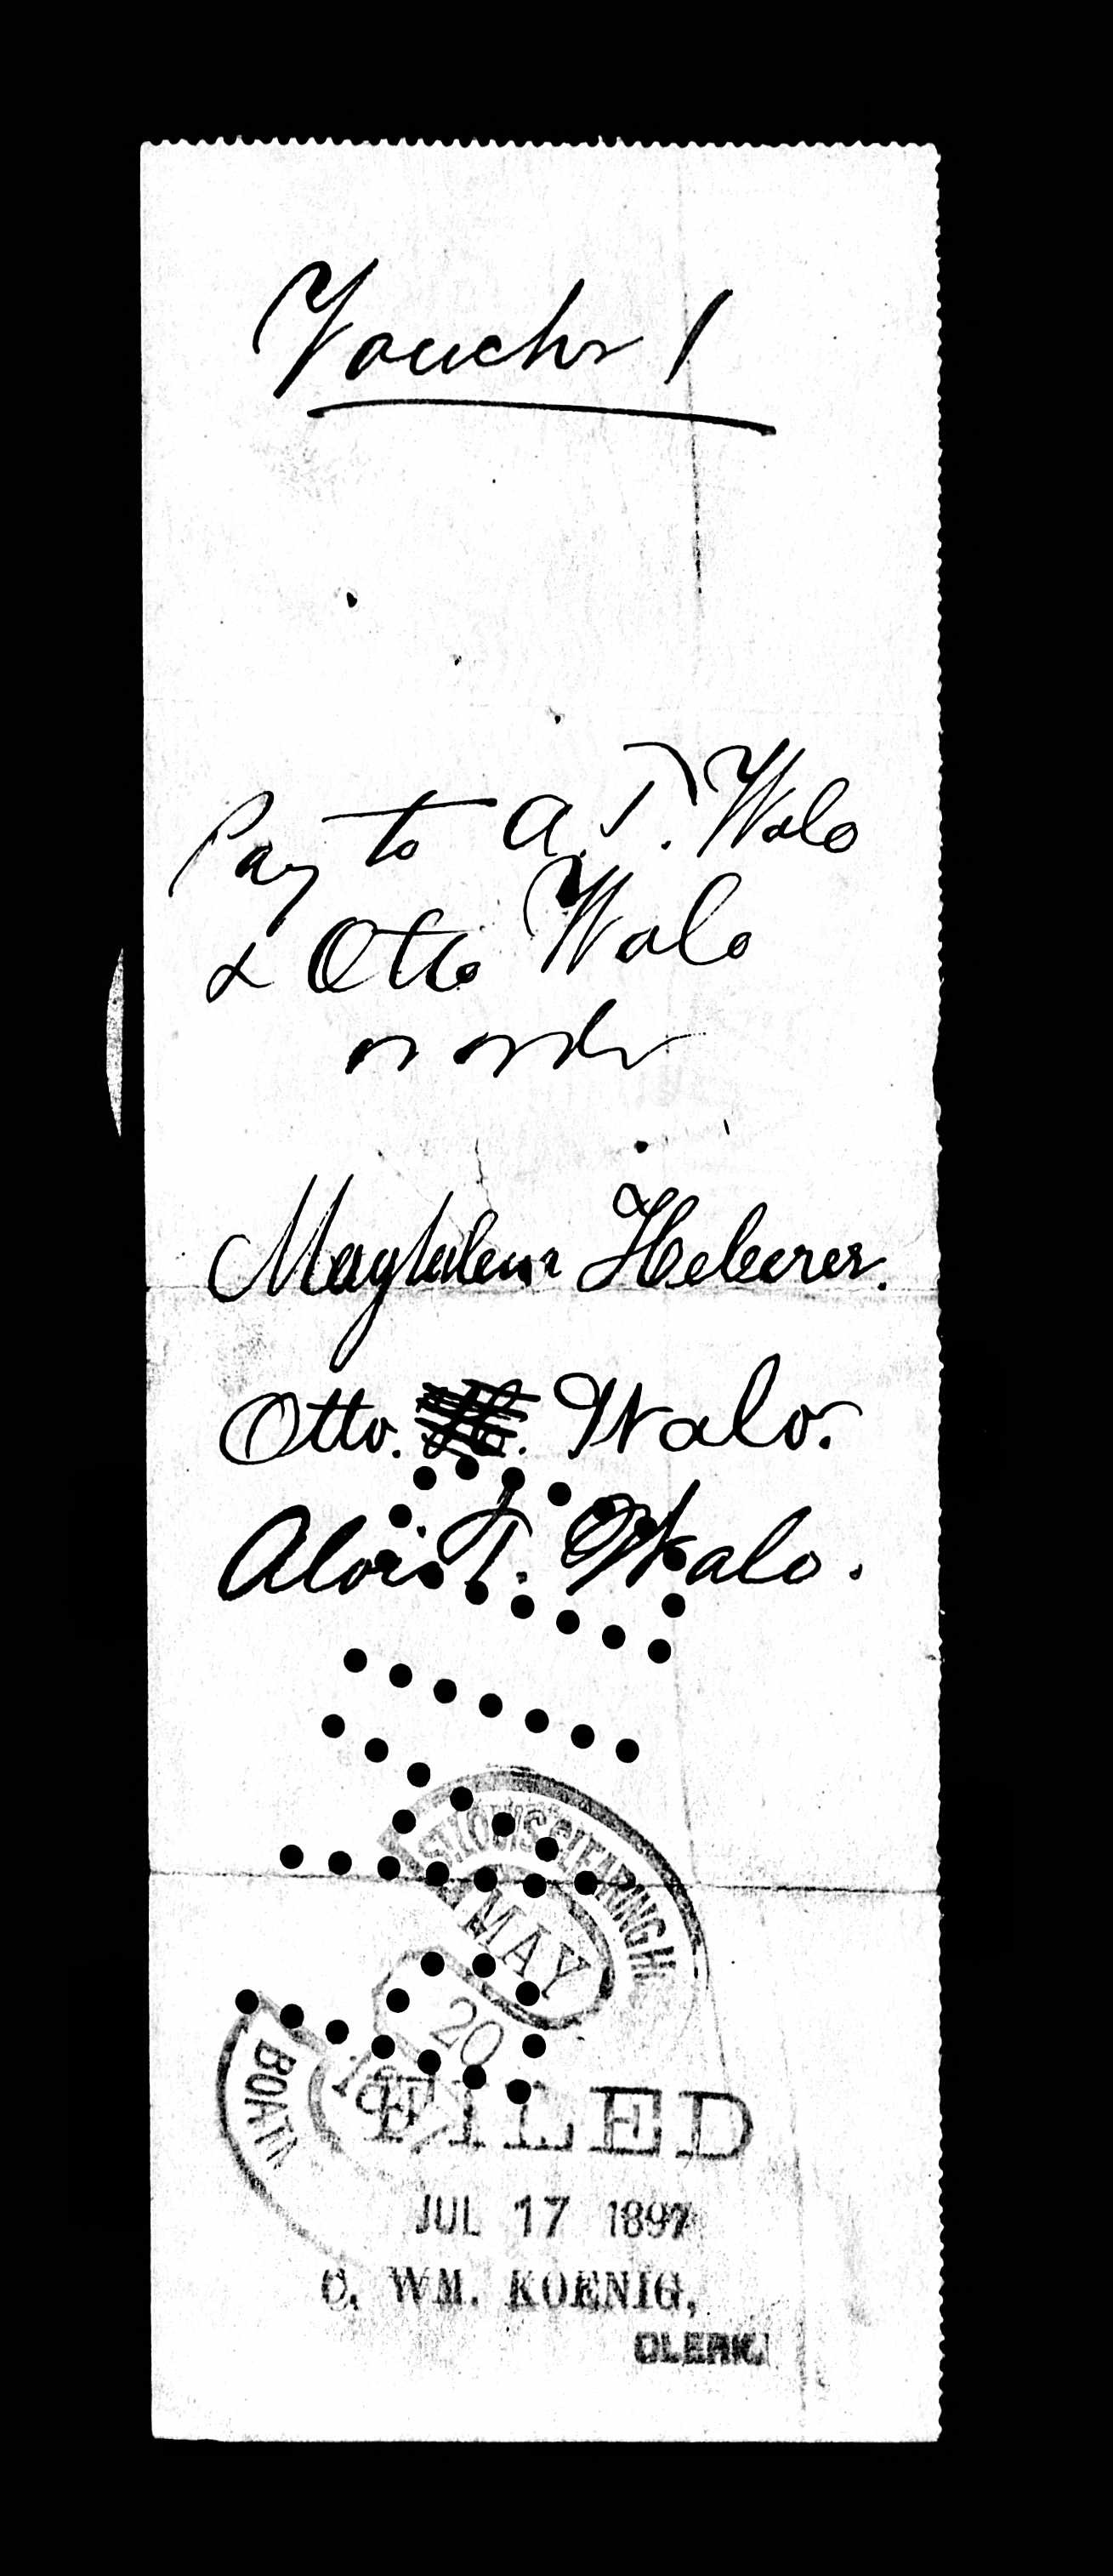 Vouchr 1
Pay to A. T. Walo
& Otto Walo
or order
Magdalena Heberer.
Otto. Walo.
Alois T. Walo.
ST. LOUIS CLEARING H
MAY
20
BOATM
FILED
JUL 17 1897
C. WM. KOENIG,
CLERK.